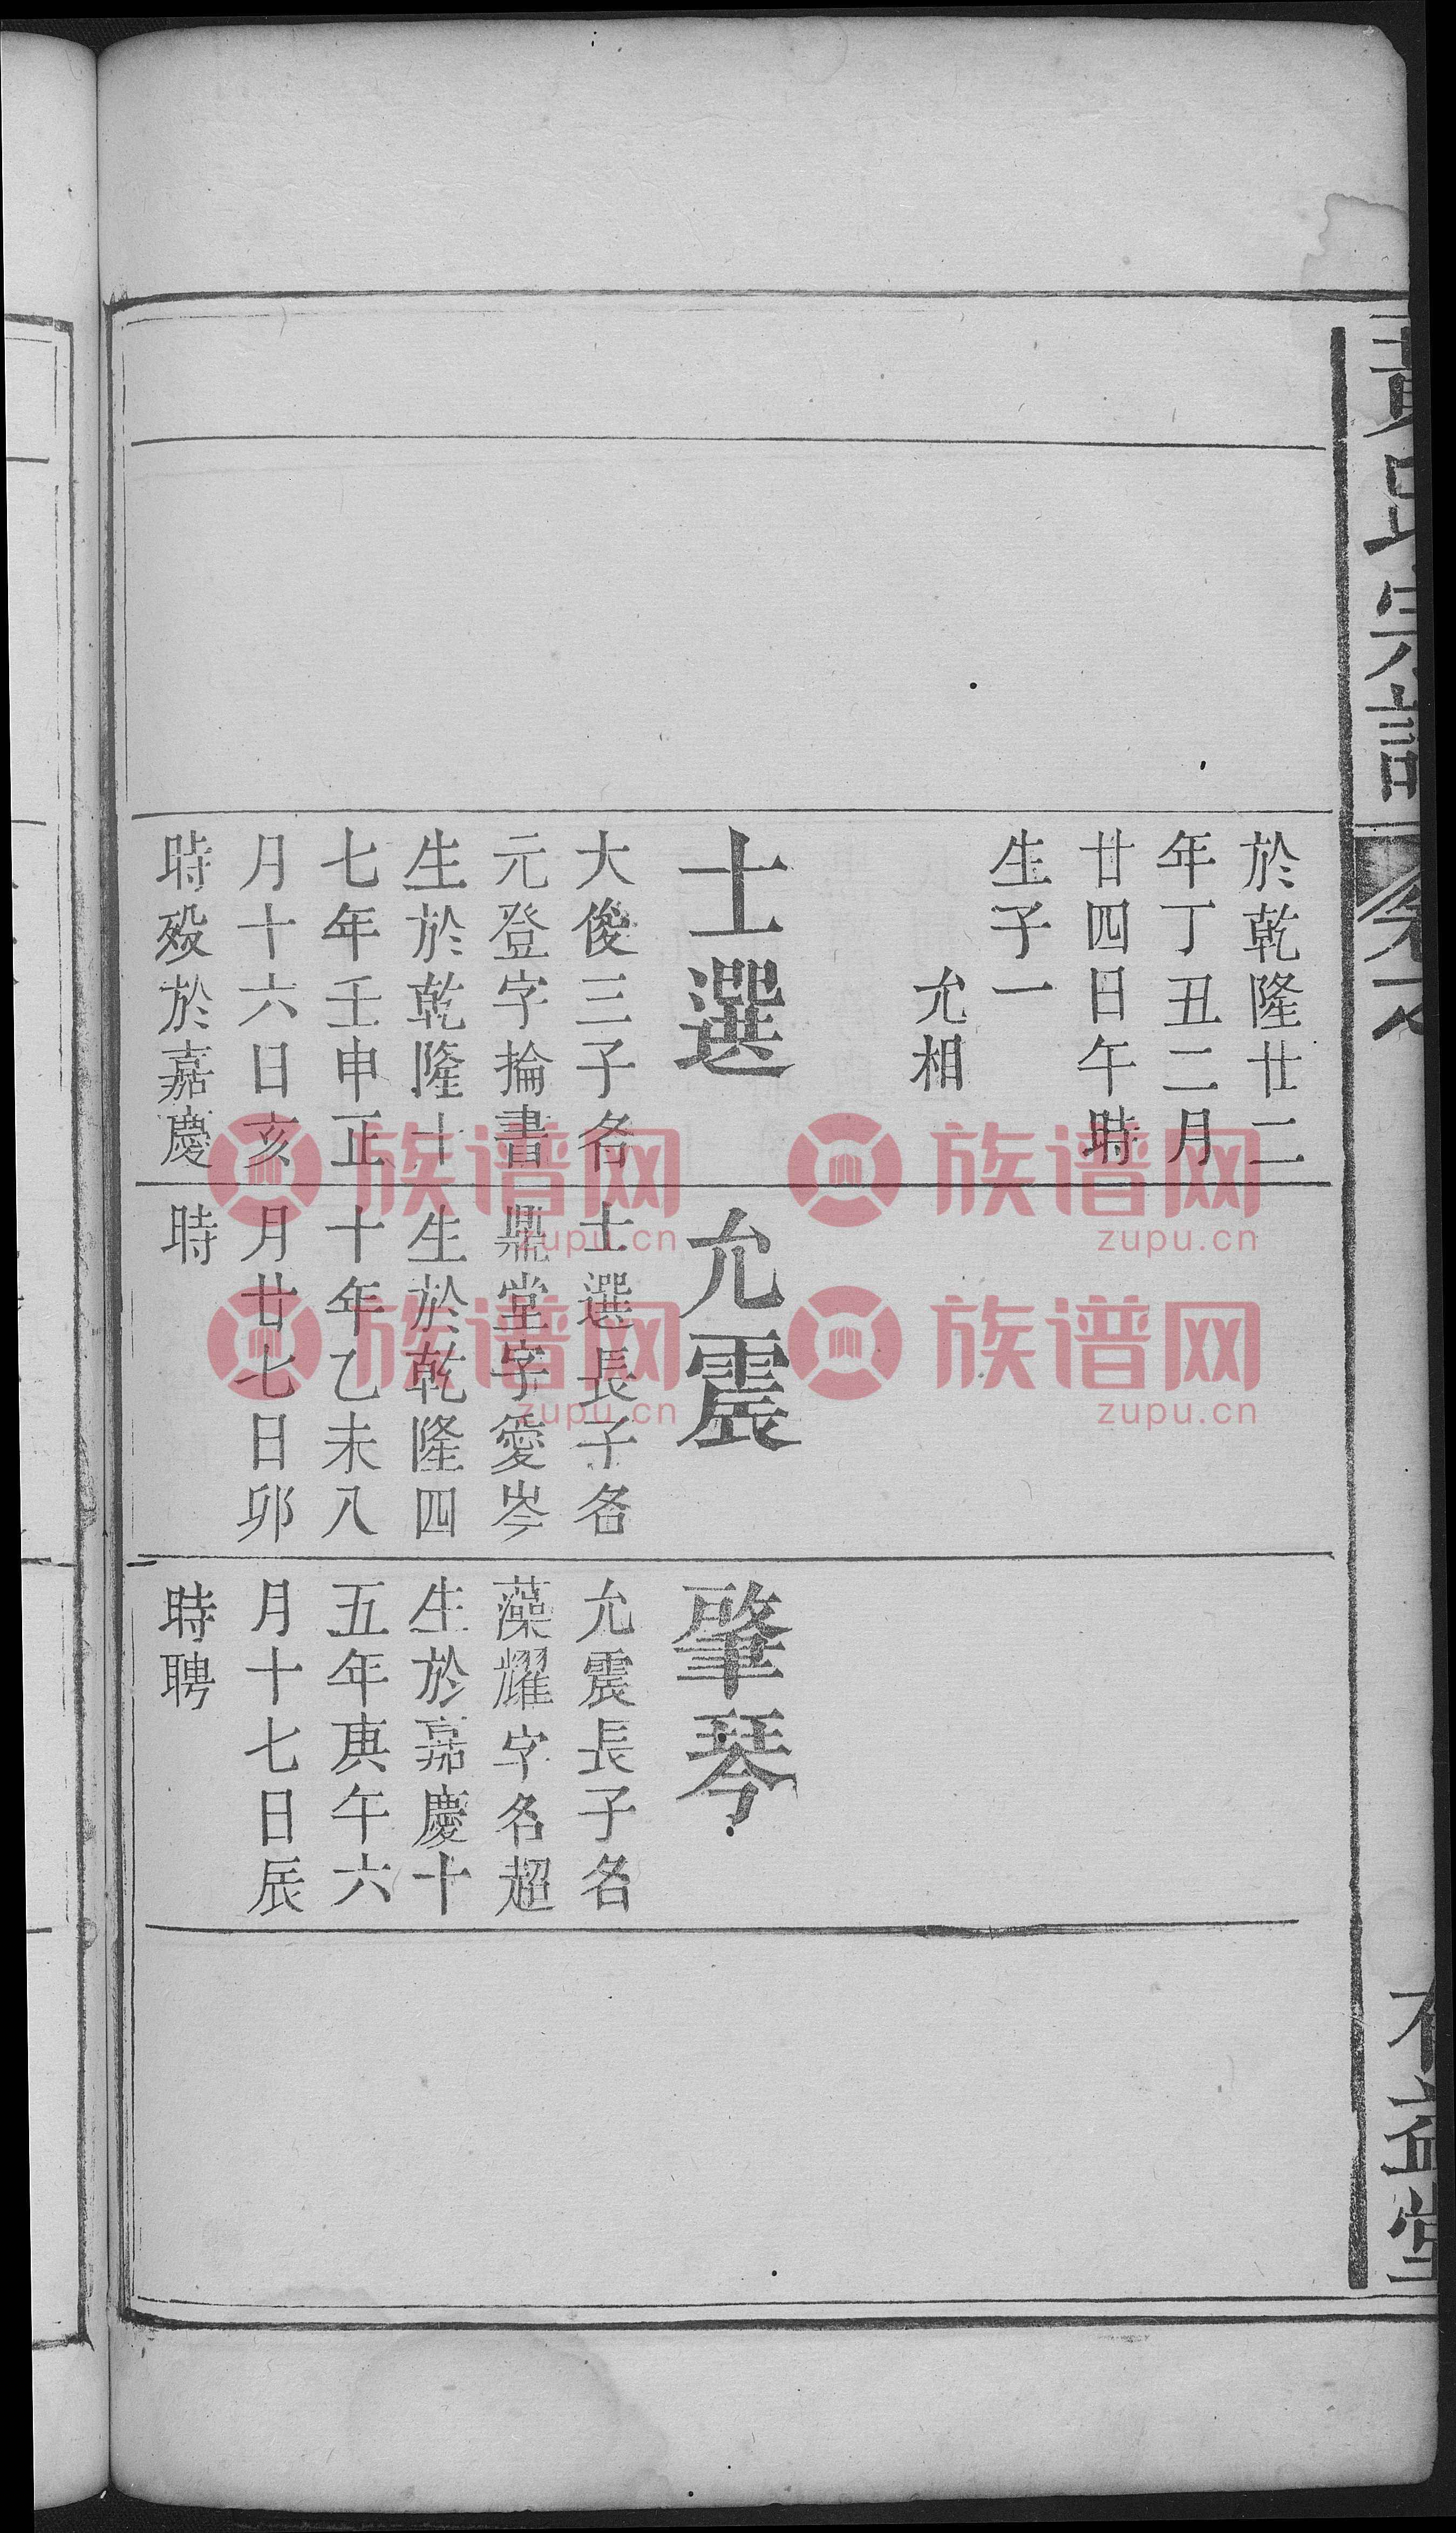 黃氏宗譜
於乾隆廿二
年丁丑二月
廿四日午時
生子一
允相
士選
大俊三子名
元登字掄書
生於乾隆十
七年壬申正
月十六日亥
時殁於嘉慶
允震
士選長子名
鼎堂字愛岑
生於乾隆四
十年乙未八
月廿七日卯
時
肇琴
允震長子名
藻耀字名超
生於嘉慶十
五年庚午六
月十七日辰
時聘
族谱网
zupu.cn
族谱网
zupu.cn
族谱网
zupu.cn
族谱网
zupu.cn